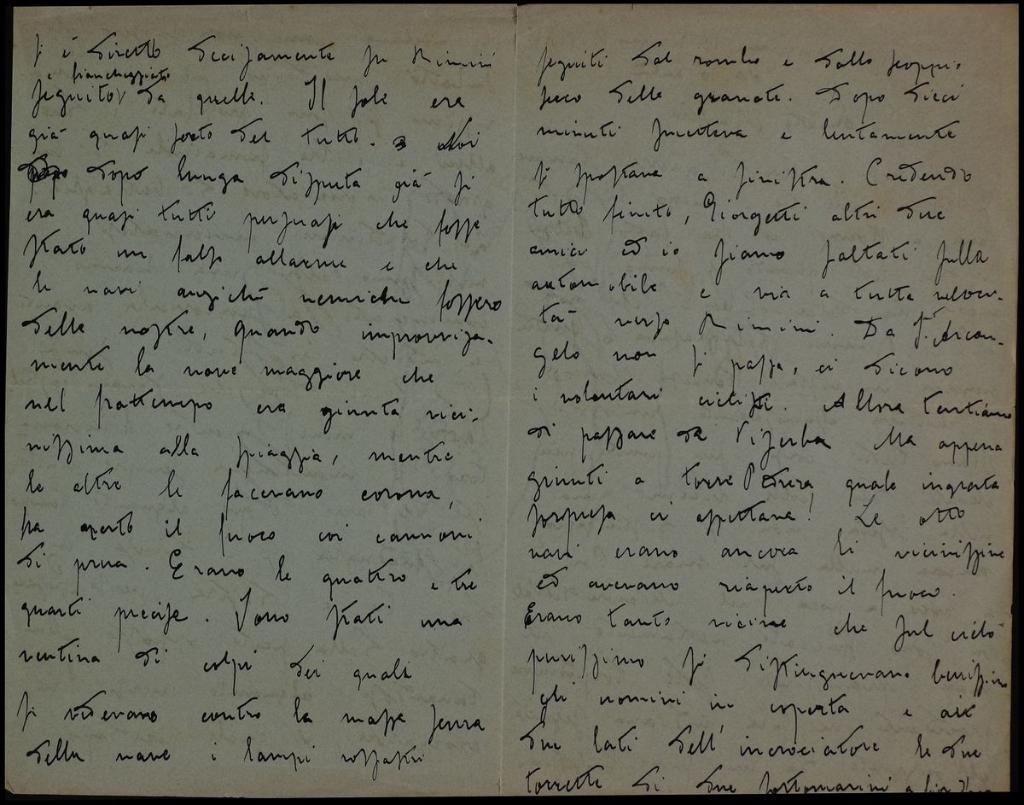 si è diretto decisamente su Rimini
e fiancheggiato
seguito da quelle. Il sole era
già quasi sorto del tutto. Noi
dopo lunga disputa già si
era quasi tutti persuasi che fosse
stato un falso allarme e che
le navi anzichè nemiche fossero
delle nostre, quando improvvisa-
mente la nave maggiore che
nel frattempo era giunta vici-
nissima alla spiaggia, mentre
le altre le facevano corona,
ha aperto il fuoco coi cannoni
di prua. Erano le quattro e tre
quarti precise. Sono stati una
ventina di colpi dei quali
si vedevano contro la massa scura
della nave i lampi rossastri
seguiti dal rombo e dallo scoppio
secco delle granate. Dopo dieci
minuti smetteva e lentamente
si spostava a sinistra. Credendo
tutto finito, Giorgetti altri due
amici ed io siamo saltati sulla
automobile e via a tutta veloci-
tà verso Rimini. Da S. Arcan-
gelo non si passa, ci dicono
i volontari ciclisti. Allora tentiamo
di passare da Viserba. Ma appena
giunti a torre Pedrera, quale ingrata
sorpresa ci aspettava! Le otto
navi erano ancora lì vicinissime
ed avevano riaperto il fuoco.
Erano tanto vicine che sul cielo
purissimo si distinguevano benissimo
gli uomini in coperta e ai
due lati dell'incrociatore le due
torrette di due sottomarini a fior d'